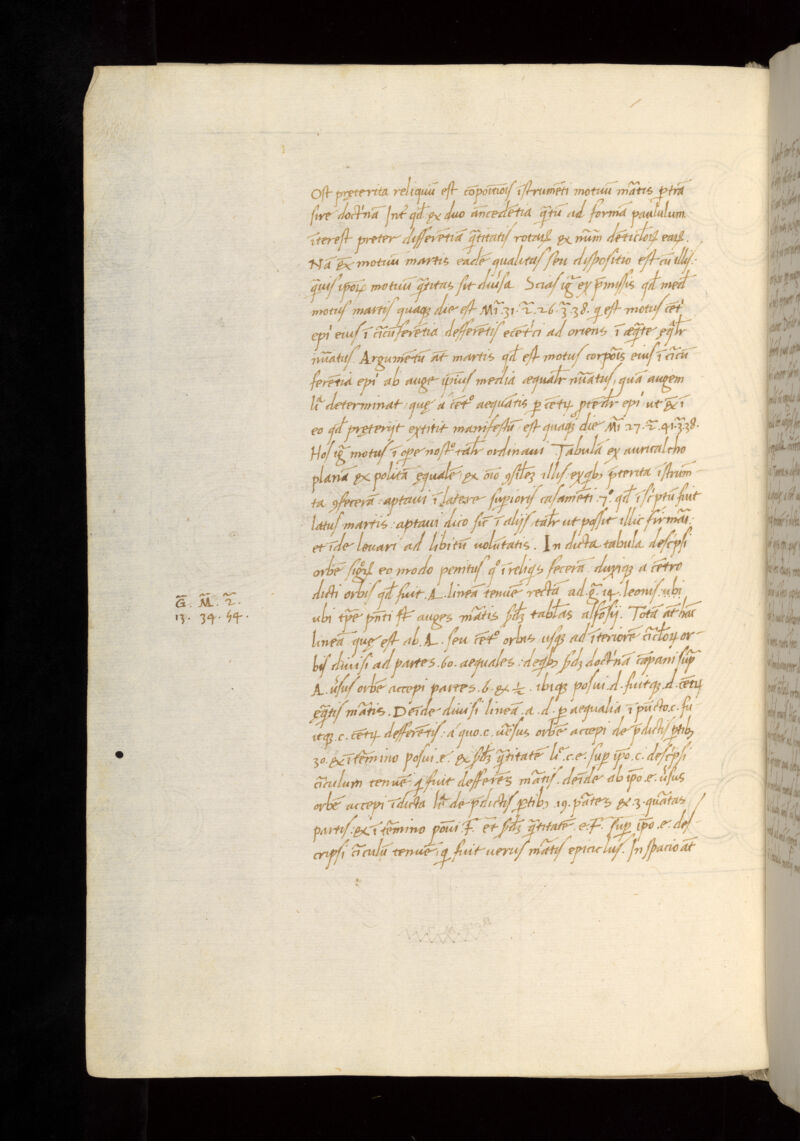 Ost pręterita reliquū est cōpoitiōis īstrumēti motuū mātis ptrā
sire doctnā Int qd ex duo ancedētia qtū ad formā paululum
īterest preter differētiā qtitatis rotaꝝ ex nūm dēticloꝝ eaꝝ.
Nā ex motuū martis eadē qualitas seu dispositio est cū illis:
quis ipoꝝ motuū qtitas sit diūsa. Scias igr ex pmissis qd med
motus martis quaqꝫ die est M. 31. 2. 26. 3. 38. q est motus cēt
epi eius ī circūferētia defferētis ecētci ad oriens ī æqte eqlr
nūatus. Argumētū at martis qd est motus corpois eius ī circū
ferētia epi ab auge ipius media æqualr nūatus, quā augem
lā determinat: quę a cēto aequātis p cētꝝ ptēdr epi ut ex ī
eo qd pręterijt extitit manifestū est quaqꝫ die M 27. 2. 41. 3. 38.
Hos igr motus ī ope nosto talr ordinaui Tabulā ex auricalcho
planā ex politā equalē: ex oīo 9silēs illis exqbꝫ pterita īstrum
ta 9fecerā aptaui ī latere supioris casamēti 7º qd īscptū fuit
latus martis: aptaui dico sic ī alijs talr ut possit illic firmāi:
et īde leuari ad libitū uolūtatis. In dicta tabula descpsi
orbē sigoꝝ eo modo penitus qº ī reliqs fecerā duxiqꝫ a cētro
dicti orbis qd fuit .A. lineā tenuē rectā ad .g. 14. leonis: ubi
G. M. 2.
13. 34. 54.
ubi tpē pnti st auges mātis sdꝫ tablas alfōsij. Totā at hāc
lineā quę est ab .A. seu cēto orbis usqꝫ ad īteriorē circloꝝ or-
bis diuisi ad partes .60. aequales: deqbꝫ sdꝫ doctnā cāpani sup
A. ūsus orbē accepi partes .6. ex ½. ibiqꝫ posui .d. fuitqꝫ .d. cētꝝ
eqtis mātis. Deīde diuisi lineā .a. d. p aequalia ī pūcto .c. fu
itqꝫ .c. cētꝝ defferētis: a quo .c. uēsus orbē accepi de pdictis ptibꝫ
30. ex ī tēmino posui .e. ex sdꝫ qtitatē lī .c. e. sup ipo .c. descpsi
circulum tenuē q fuit defferēs mātis. deīde ab ipo .e. ūsus
orbē accepi ī dicta lā de pdictis ptibꝫ .19. pātes ex .3. quātas
partis: ex ī tēmino posui .F. et sdꝫ qtitatē .e. F. sup ipo .e. des-
cripsi circulū tenuē: q fuit uerus mātis epiciclus. In spacio āt